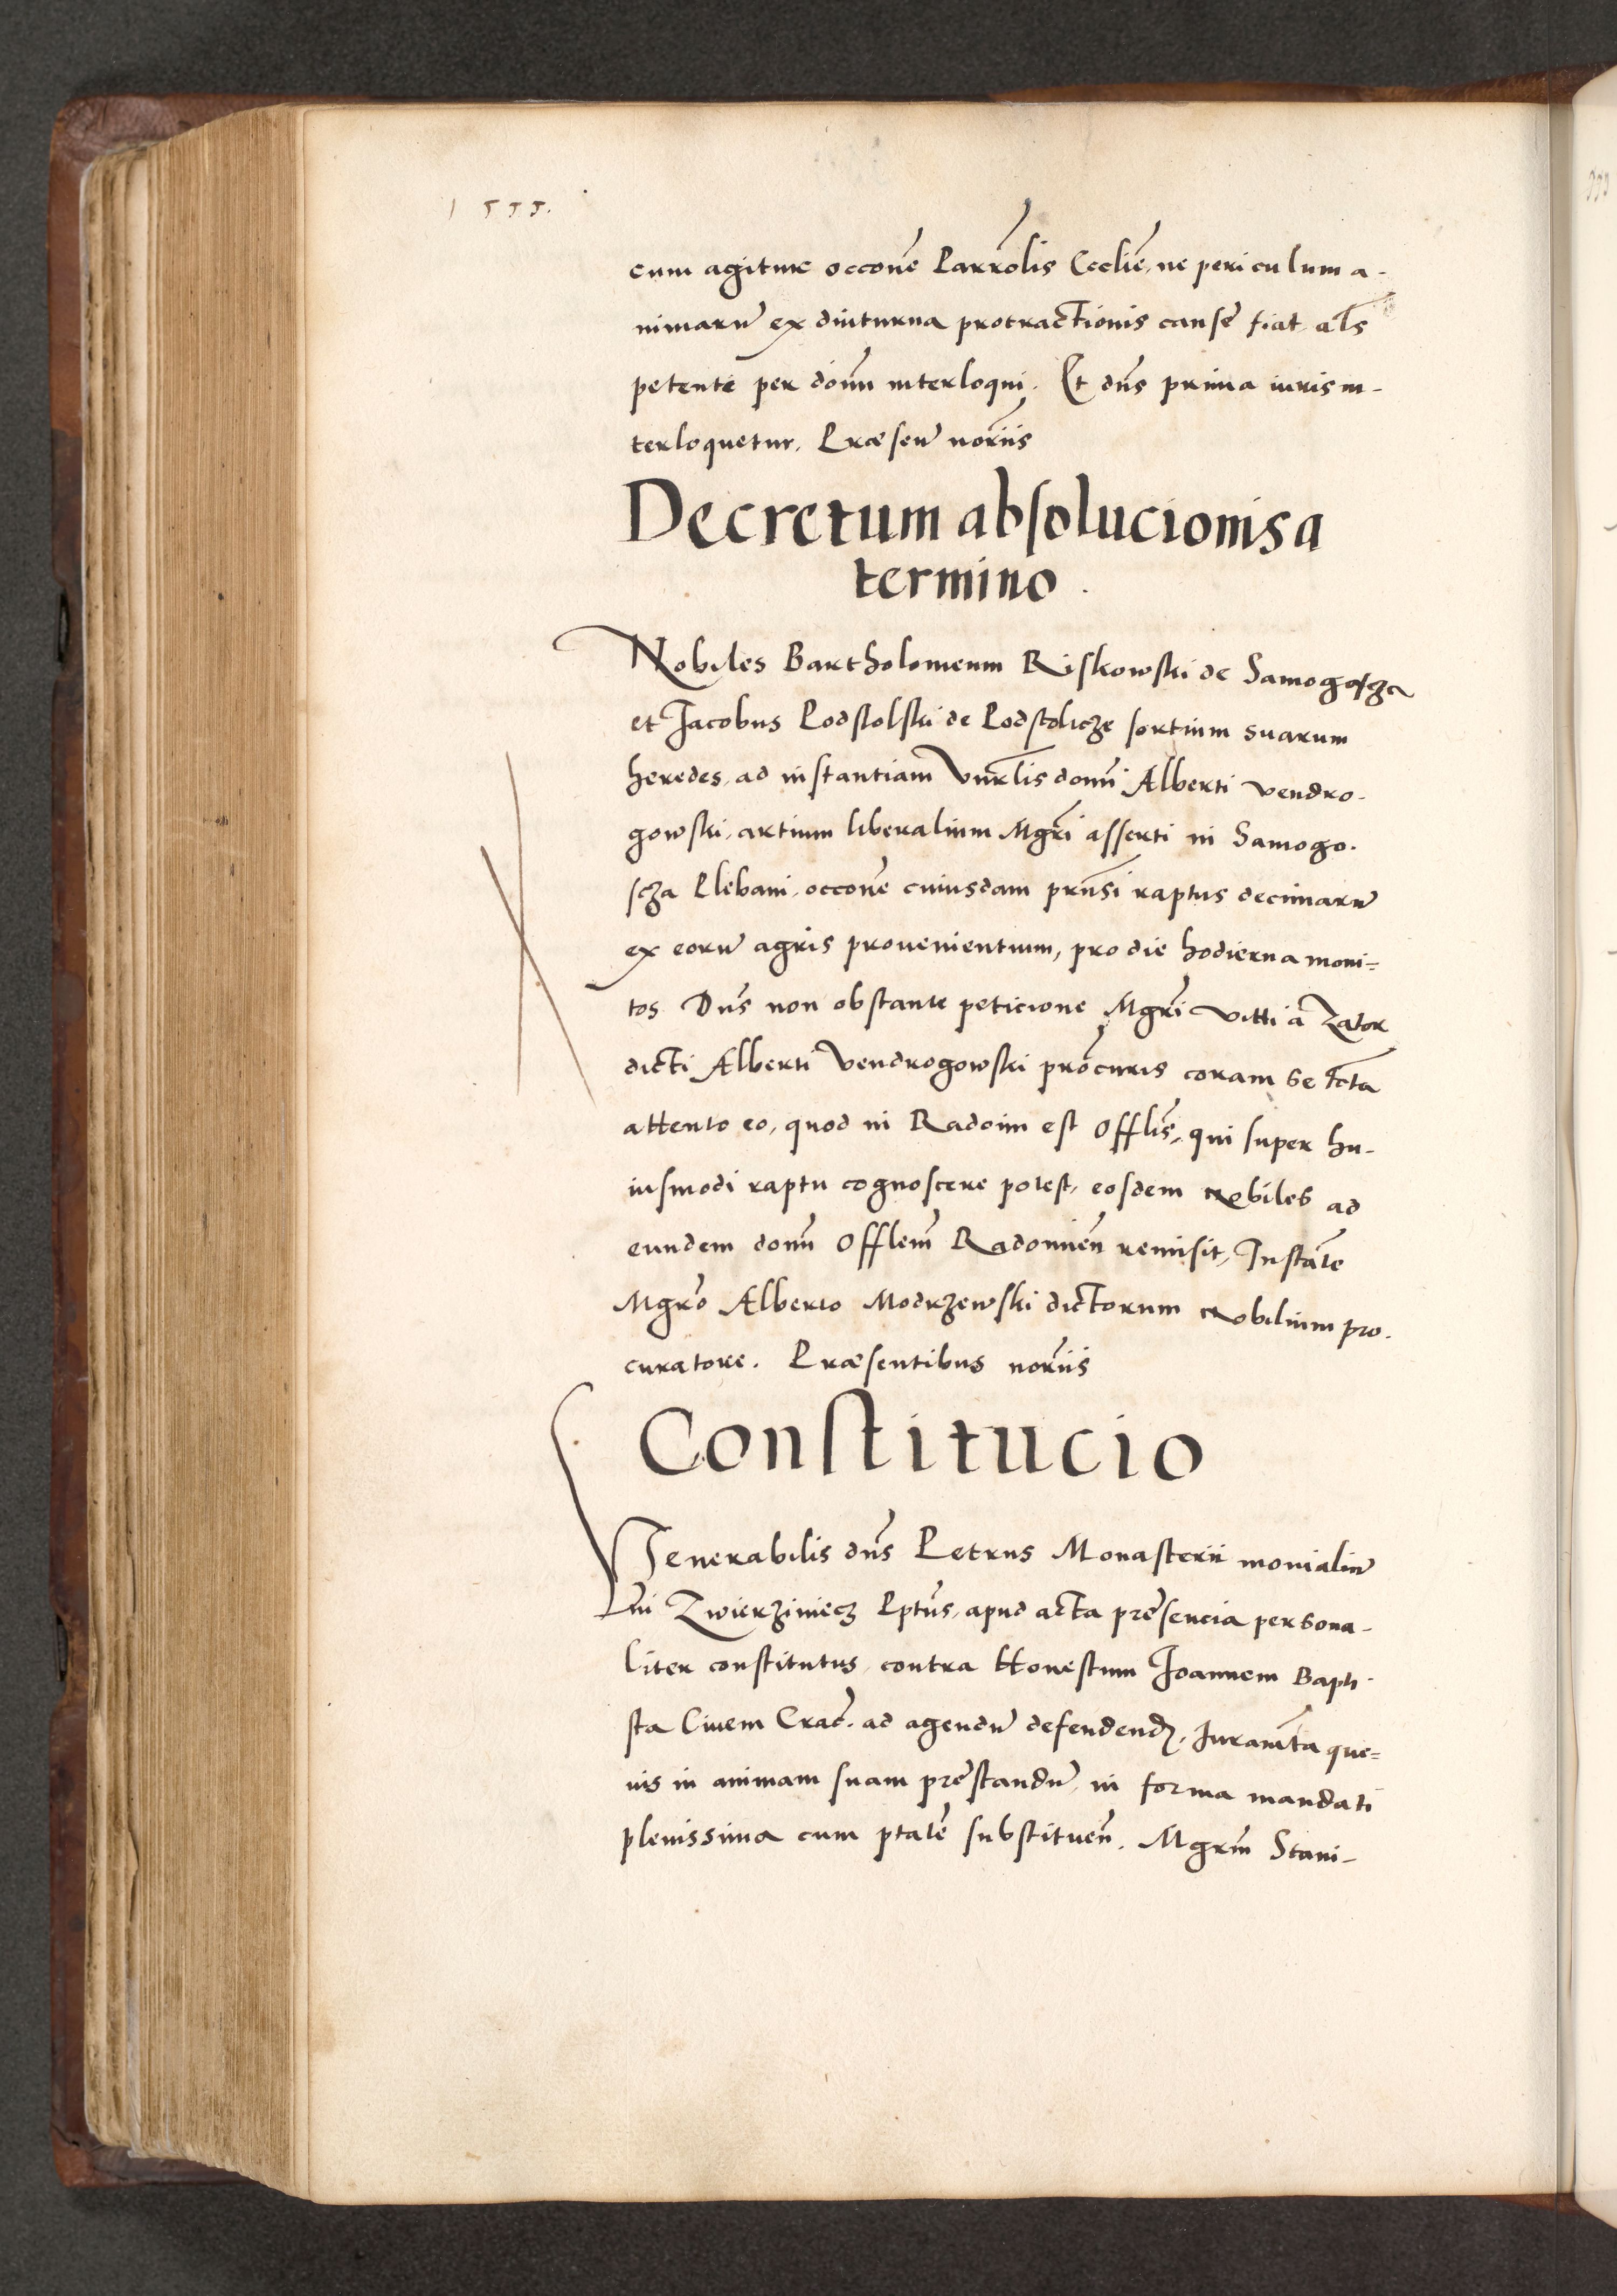 1555.
cum agitur occone Parrolis Ecclie, ne periculum a-
nimaru ex diuturna protractionis cause fiat als
petente per donu interloqui. Et dns prima iuris in-
terloquetur. Præsen noriis
Decretum absolucionis a
termino.
Nobiles Bartholomeum Riskowski de Samogoscza
et Jacobus Podstolski de Podstolicze sortium suarum
heredes, ad instantiam Vnrlis domi Alberti Vendro-
gowski, artium liberalium Mgri asserti in Samogo-
scza Plebani, occone cuiusdam prnsi raptus decimaru
ex eoru agris prouenientium, pro die hodierna moni=
tos Dns non obstante peticione Mgri Vitti a Zator
dicti Alberti Vendrogowski procuris coram se fcta
attento eo, quod in Radoim est Offlis, qui super hu-
iusmodi raptu cognoscere potest, eosdem nobiles ad
eundem donu Offlem Radomien remisit, Instate
Mgro Alberto Modrzewski dictorum nobilium pro-
curatore. Præsentibus noriis
Constitucio
Venerabilis dns Petrus Monasterii monialiu
in Zwierziniecz Pptus, apud acta presencia persona-
liter constitutus, contra Honestum Joannem Bapti-
sta Ciuem Crac. ad agendu defendend, Juramta que=
uis in animam suam prestandu, in forma mandati
plenissima cum ptate substituen. Mgrm Stani-